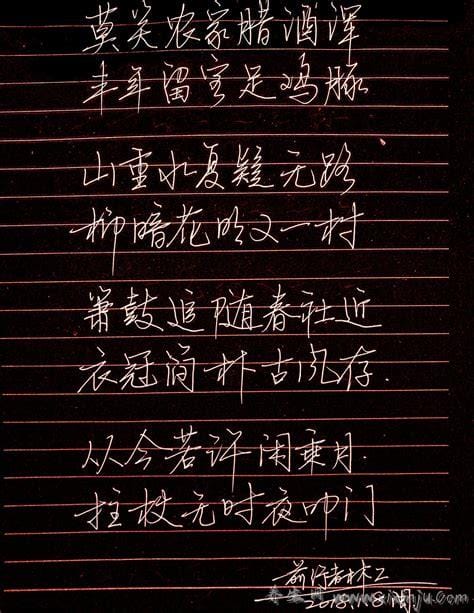 莫笑农家腊酒浑
丰年留客足鸡豚
山重水复疑无路
柳暗花明又一村
箫鼓追随春社近
衣冠简朴古风存.
从今若许闲乘月.
拄杖无时夜叩门